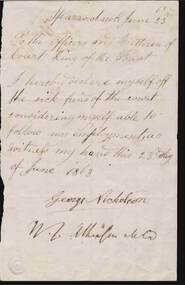 June 23
To the Officers and Brethren of
Court King of the Forest
I hereby declare myself off
the sick funds of the court
considering myself able to
follow my employment, as
witness my hand this 23rd day
of June 1863
George Nicholson
W. L. Atkinson